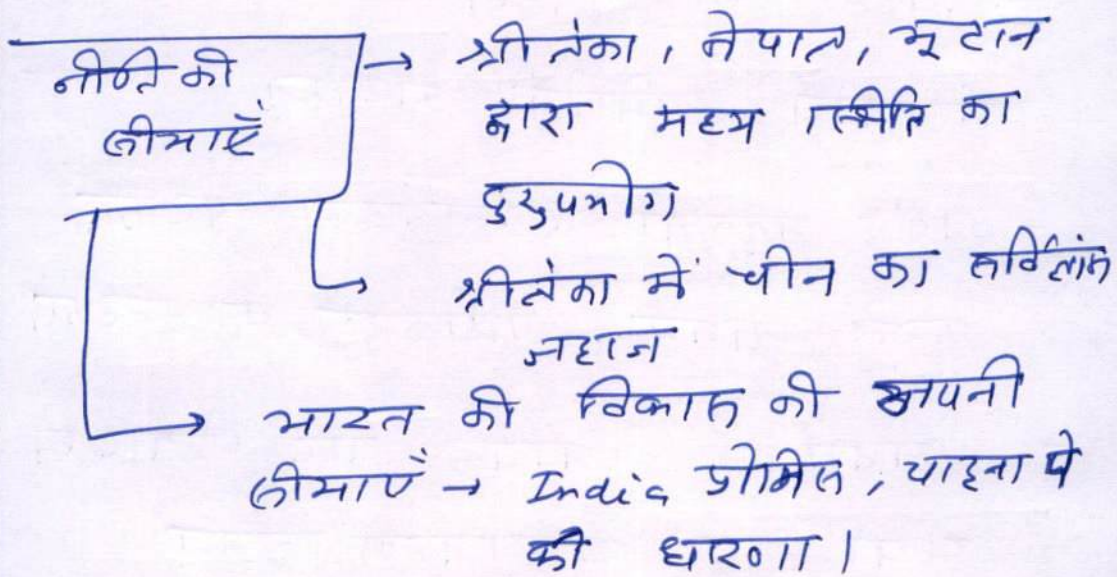 नीति की
सीमाएँ
→ श्रीलंका, नेपाल, भूटान
द्वारा मध्य स्थिति का
दुरुपयोग
→ श्रीलंका में चीन का सर्विलांस
जहाज
→ भारत की विकास की अपनी
सीमाएँ → India प्रोमिस, चाइना पे
की धारणा।